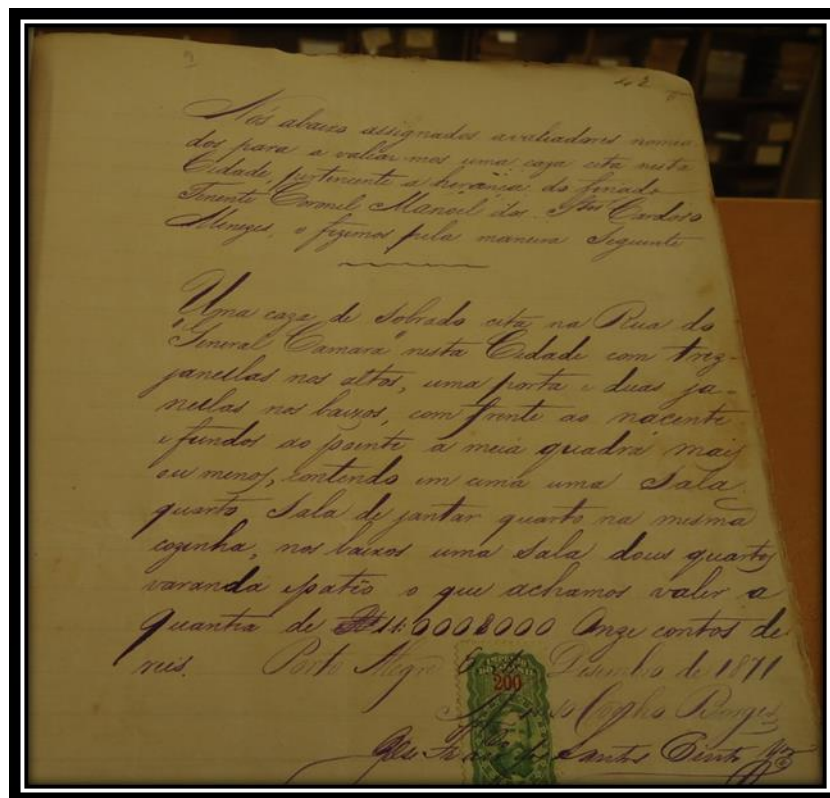 42
Nós abaixo assignados avaliadores nomea
dos para a valiar mos uma caza cita nesta
Cidade, pertencente a herança do finado
Tenente Coronel Manoel dos Stos Cardozo
Menezes, o fizemos pela maneira Seguinte
Uma caza de Sobrado cita na Rua do
"General Camara" nesta Cidade com trez
janellas nos altos, uma porta e duas ja-
nellas nos baixos, com frente ao nacente
e fundos ao poente a meia quadra mais
ou menos, contendo em cima uma Sala,
quarto, Sala de jantar quarto na mesma
cozinha, nos baixos uma Sala dous quartos
varanda epatio o que achamos valer a
quantia de 11:000$000 Onze contos de
reis. Porto Alegre Desembro de 1871
200
Santos Pinto